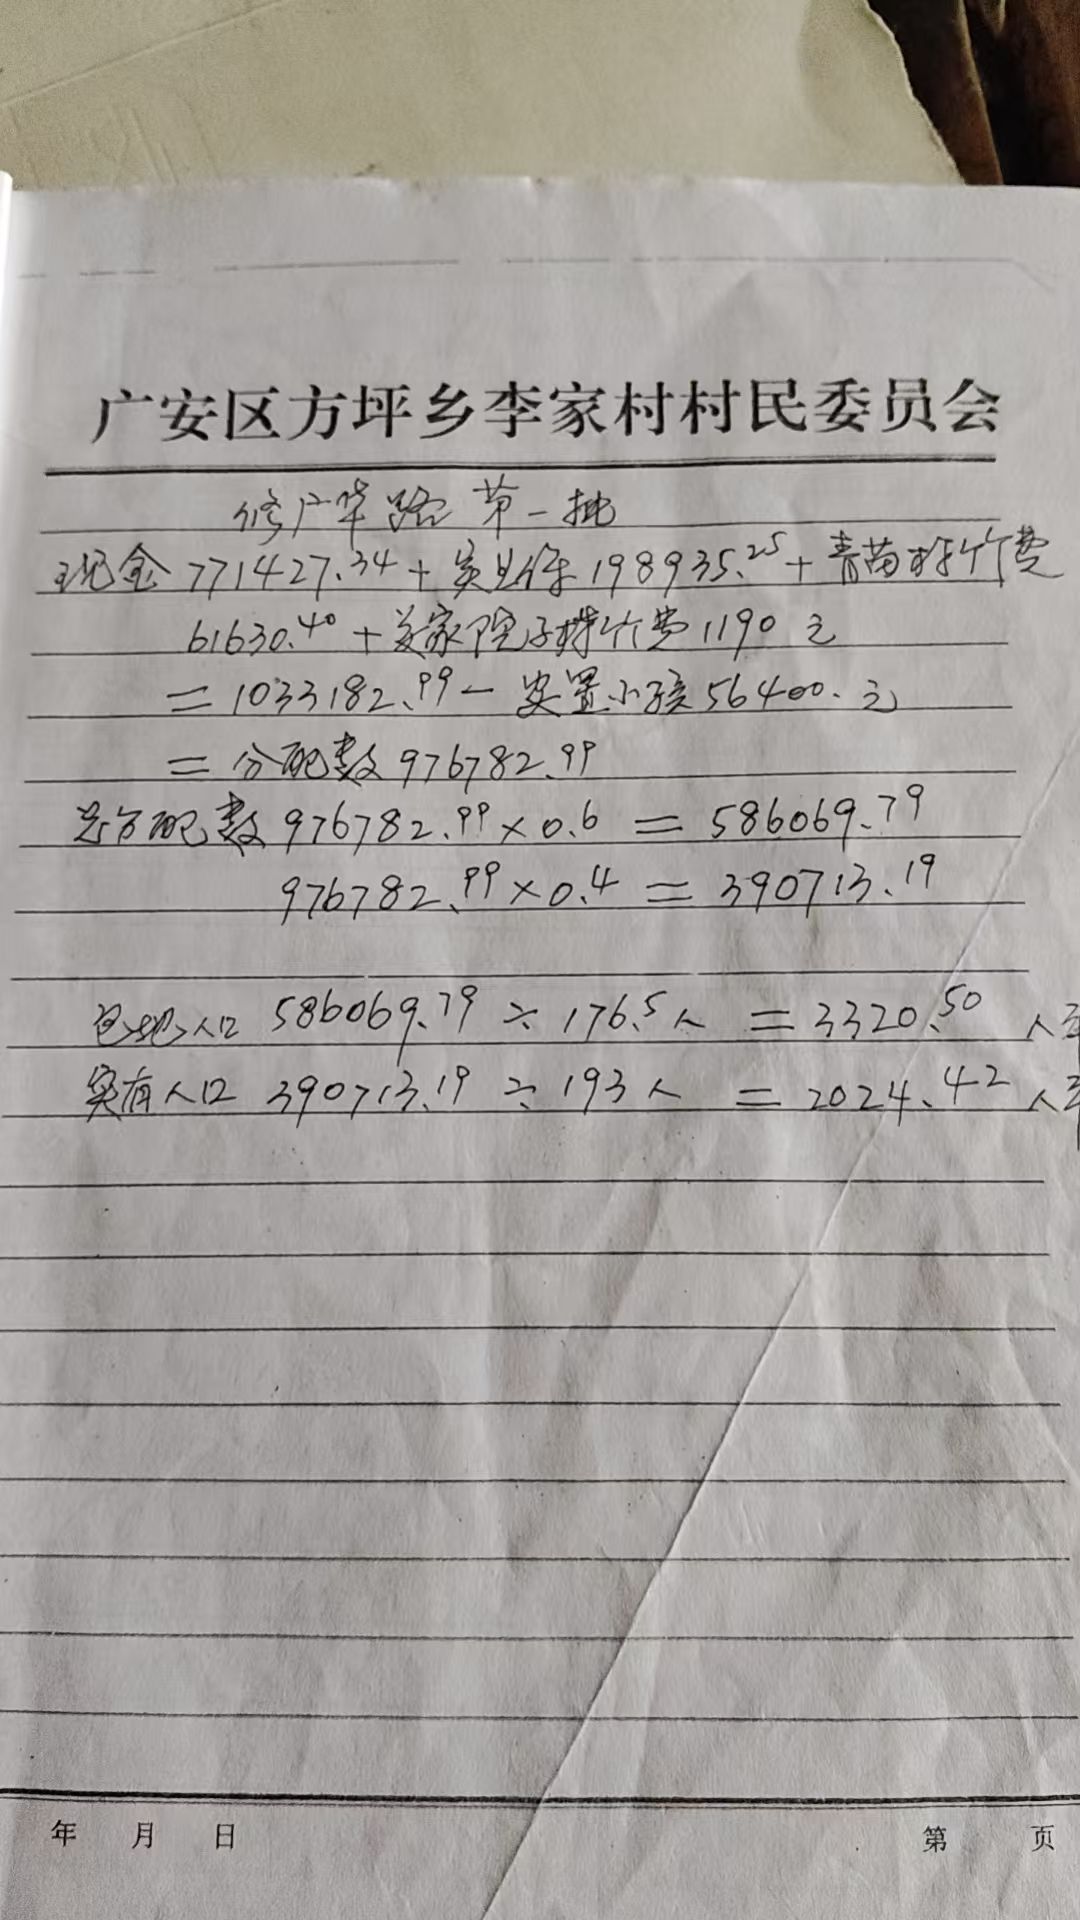 广安区方坪乡李家村村民委员会
修广华路第一批
现金771427.34+失业保198935.25+青苗树竹费
61630.40+关家院子树竹费1190元
=1033182.99-安置小孩56400.元
=分配数976782.99
总分配数976782.99×0.6=586069.79
976782.99×0.4=390713.19
包地人口 586069.79÷176.5人=3320.50 人
实有人口 390713.19÷193人=2024.42 人
年 月 日
第 页